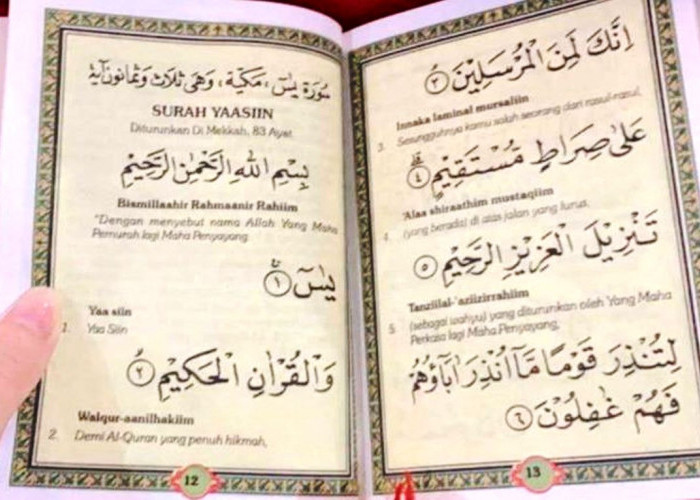 سُورَة يٰسٓ، مَكِيَّة، وَهِيَ ثَلَاث وَثَمَانُونَ آيَة
SURAH YAASIIN
Diturunkan Di Mekkah, 83 Ayat
بِسْمِ اللهِ الرَّحْمٰنِ الرَّحِيْمِ
Bismillaahir Rahmaanir Rahiim
"Dengan menyebut nama Allah Yang Maha
Pemurah lagi Maha Penyayang.
يٰسٓ ۚ ﴿١﴾
Yaa siin
1. Yaa Siin
وَالْقُرْاٰنِ الْحَكِيْمِ ﴿٢﴾
Walqur-aanilhakiim
2. Demi Al-Quran yang penuh hikmah,
12
اِنَّكَ لَمِنَ الْمُرْسَلِيْنَ ﴿٣﴾
Innaka laminal mursaliin
3. Sesungguhnya kamu salah seorang dari rasul-rasul,
عَلٰى صِرَاطٍ مُّسْتَقِيْمٍ ﴿٤﴾
'Alaa shiraathim mustaqiim
4. (yang berada) di atas jalan yang lurus,
تَنْزِيْلَ الْعَزِيْزِ الرَّحِيْمِ ﴿٥﴾
Tanziilal-'aziizirrahiim
5. (sebagai wahyu) yang diturunkan oleh Yang Maha
Perkasa lagi Maha Penyayang,
لِتُنْذِرَ قَوْمًا مَّآ اُنْذِرَ اٰبَآؤُهُمْ
فَهُمْ غٰفِلُوْنَ ﴿٦﴾
13